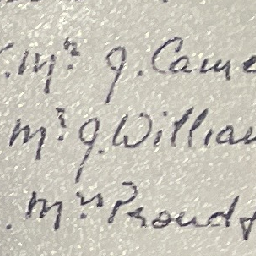 Mr J. Came
Mr J. William
Mrs Proudf